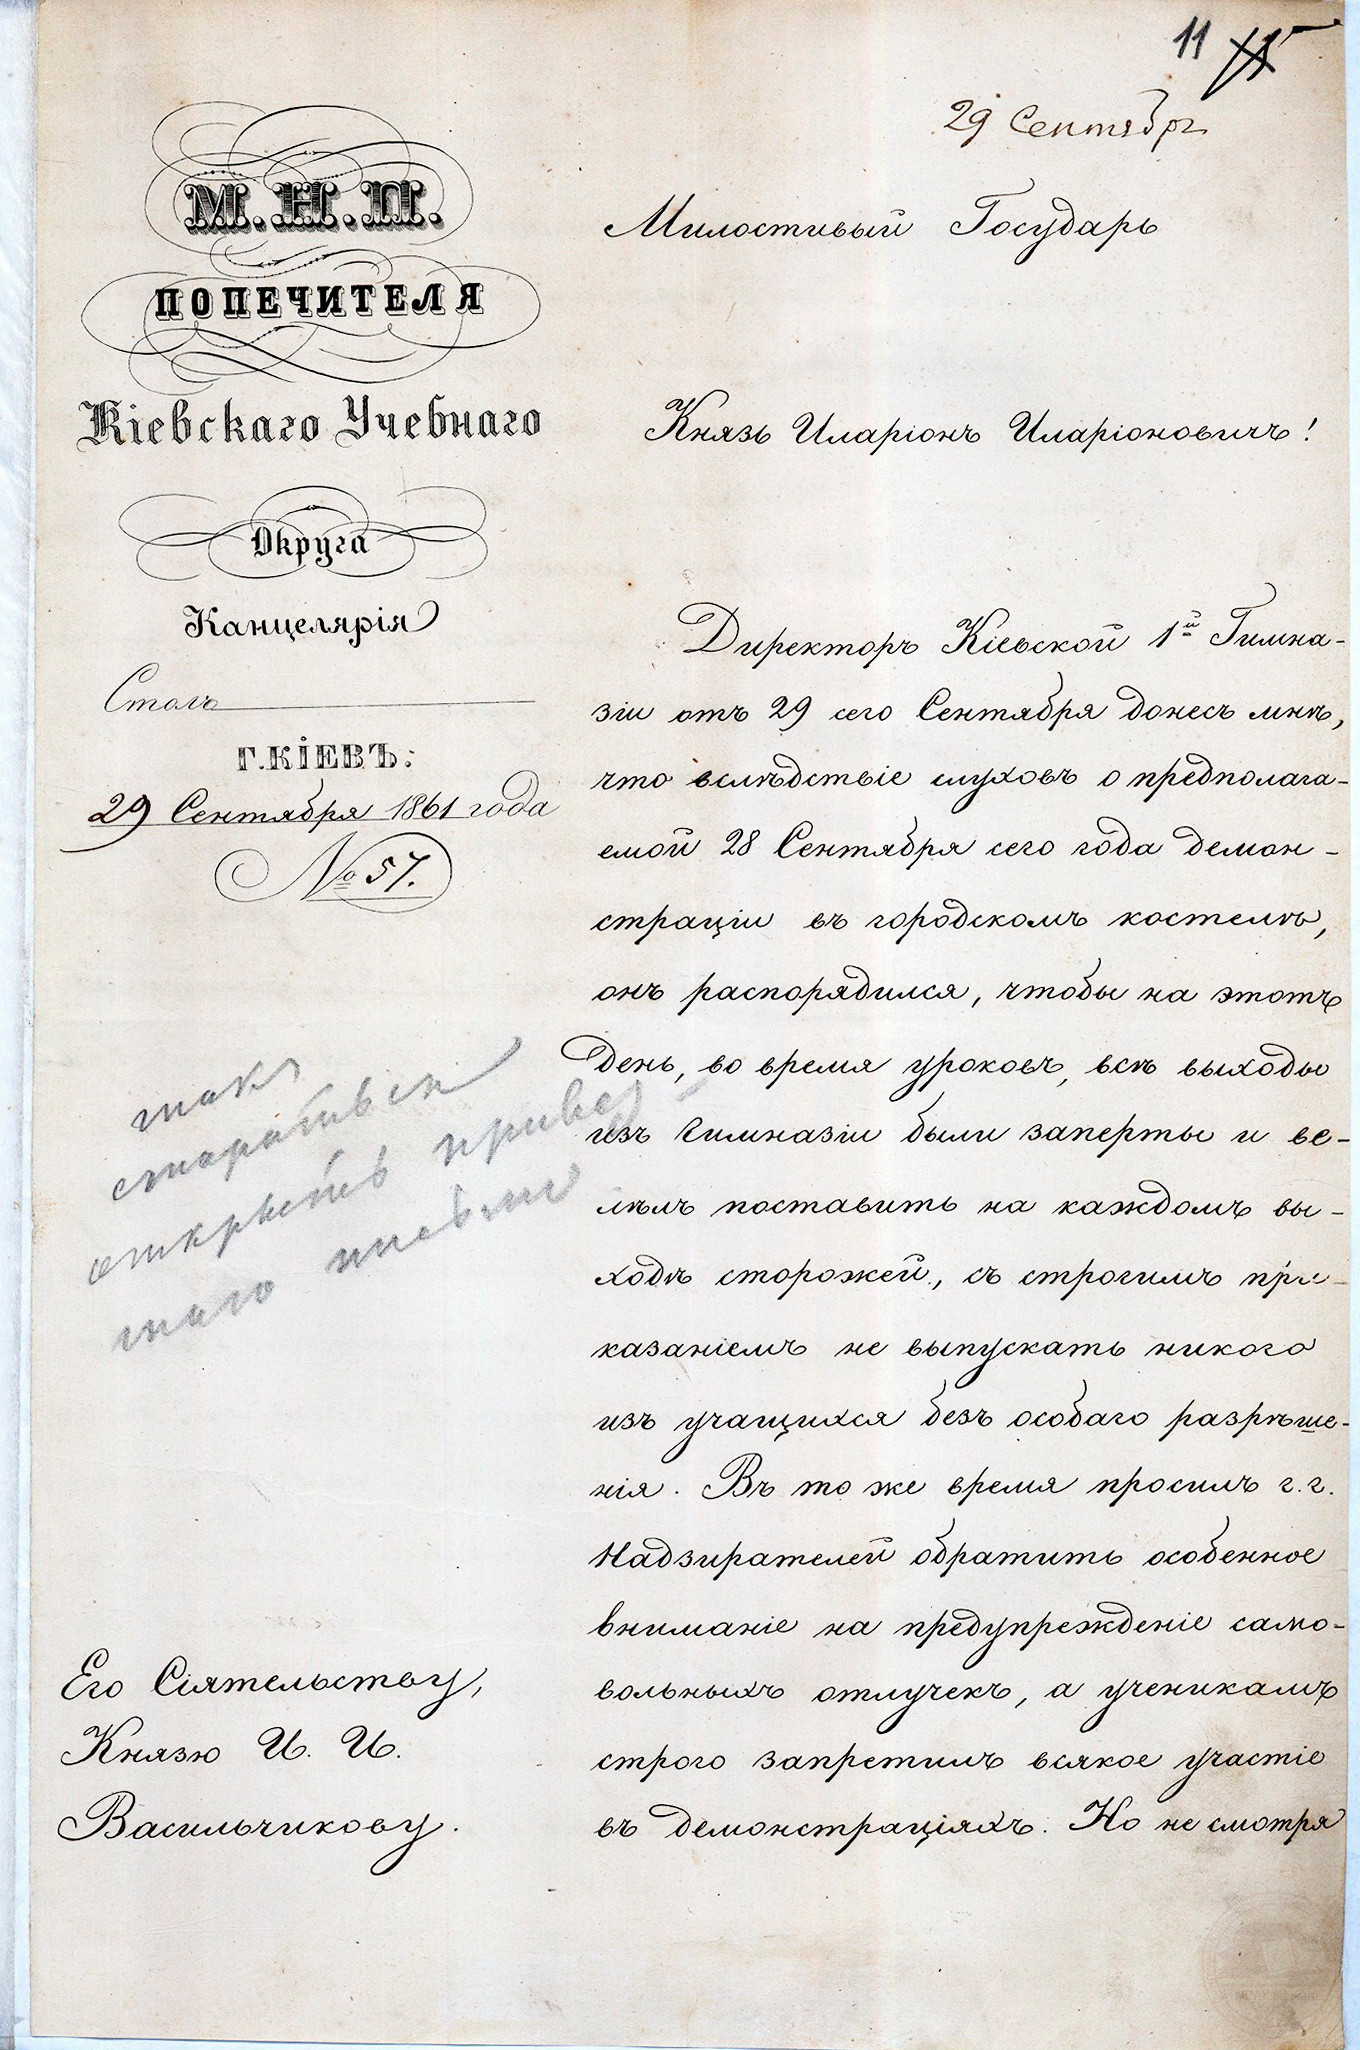 11
29 Сентября
М. Н. П.
ПОПЕЧИТЕЛЯ
Кіевскаго Учебнаго
Округа
Канцелярія
Столъ
Г. КІЕВЪ:
29 Сентября 1861 года
№ 57.
Милостивый Государь
Князь Иларіонъ Иларіоновичъ!
Директоръ Кіевской 1й Гимна-
зіи отъ 29 сего Сентября донесъ мнѣ,
что вслѣдствіе слуховъ о предполага-
емой 28 Сентября сего года демон-
страціи въ городскомъ костелѣ,
онъ распорядился, чтобы на этотъ
день, во время уроковъ, всѣ выходы
изъ Гимназіи были заперты и ве-
лѣлъ поставить на каждомъ вы-
ходѣ сторожей, съ строгимъ при-
казаніемъ не выпускать никого
изъ учащихся безъ особаго разрѣше-
нія. Въ то же время просилъ г.г.
Надзирателей обратить особенное
вниманіе на предупрежденіе само-
вольныхъ отлучекъ, а ученикамъ
строго запретилъ всякое участіе
въ демонстраціяхъ. Но не смотря
стараться
открыть
Его Сіятельству,
Князю И. И.
Васильчикову.